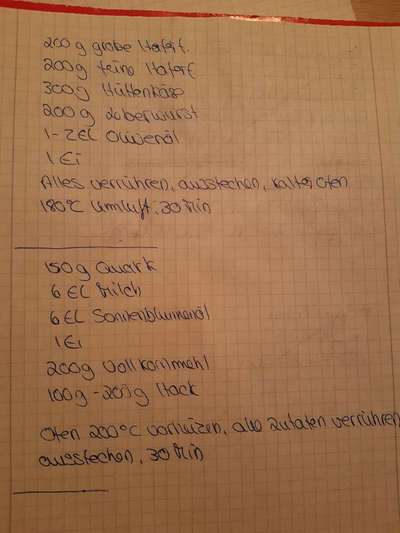 200g grobe Haferf.
200g feine Haferf
300g Hüttenkäse
200g Leberwurst
1-2 EL Olivenöl
1 Ei
Alles verrühren, ausstechen, kalter Ofen
180°C Umluft, 30 Min
150g Quark
6 EL Milch
6 EL Sonnenblumenöl
1 Ei
200g Vollkornmehl
100g-200g Hack
Ofen 200°C vorheizen, alle Zutaten verrühren
ausstechen, 30 Min